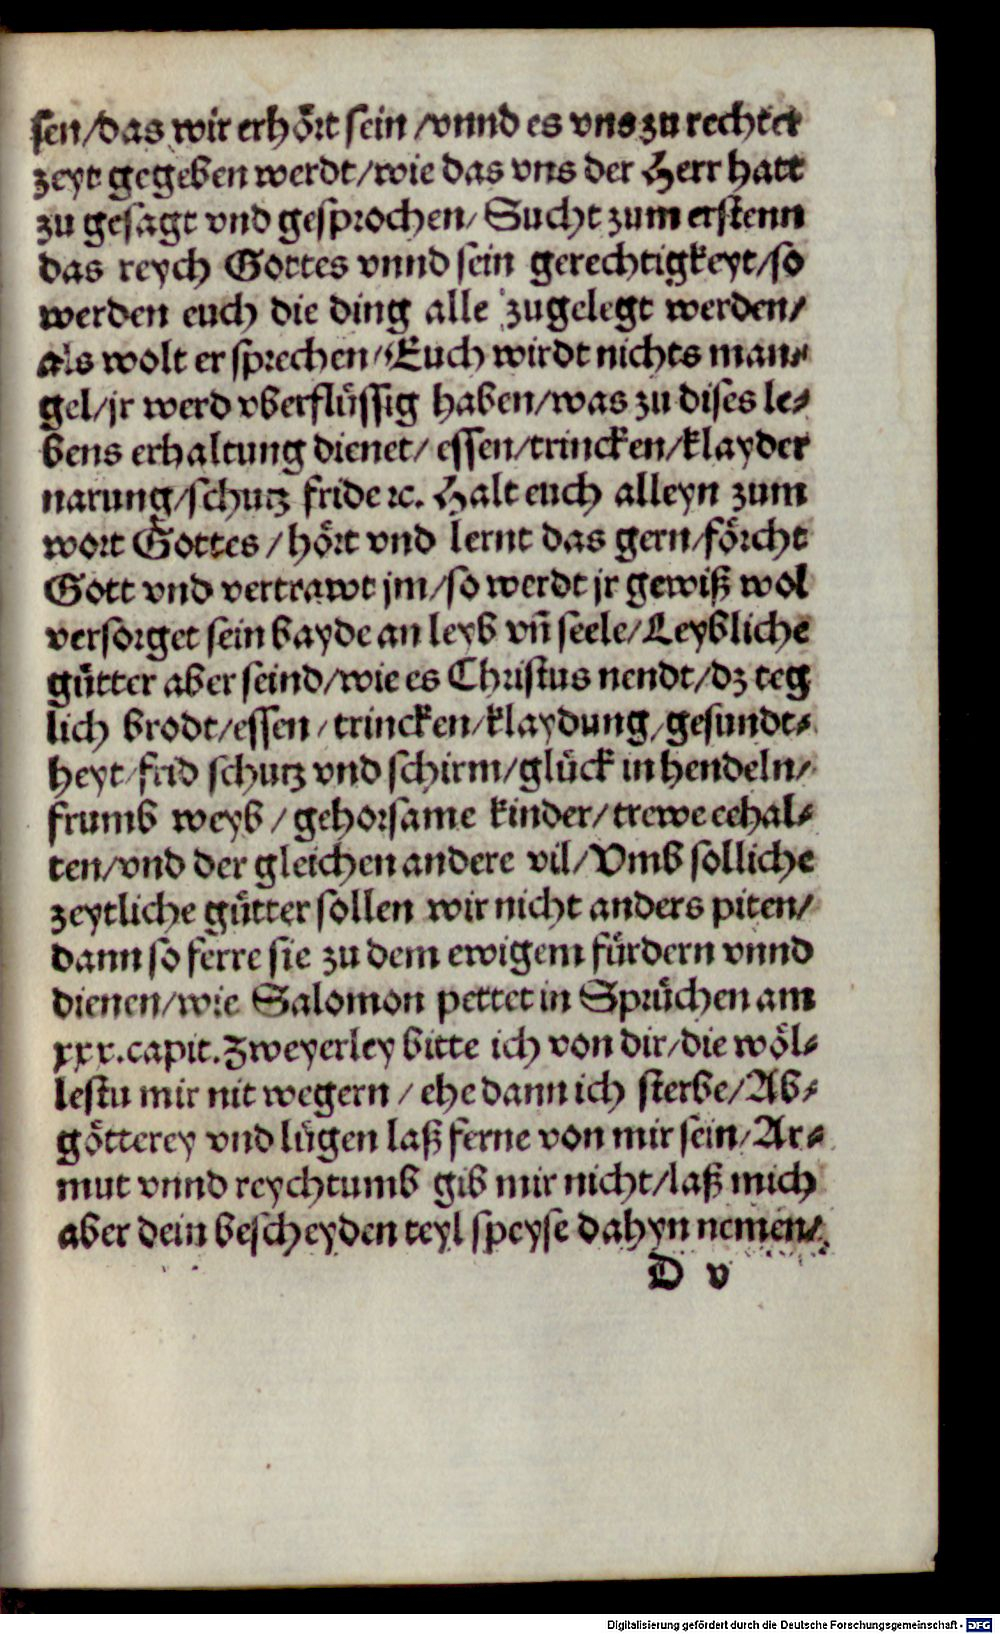 sen/das wir erhört sein/vnnd es vns zu rechter
zeyt gegeben werdt/wie das vns der Herr hatt
zu gesagt vnd gesprochen/Sucht zum erstenn
das reych Gottes vnnd sein gerechtigkeyt/so
werden euch die ding alle zugelegt werden/
als wolt er sprechen/Euch wirdt nichts man⸗
gel/jr werd vberflüssig haben/was zu dises le⸗
bens erhaltung dienet/essen/trincken/klayder
narung/schutz fride ꝛc. Halt euch alleyn zum
wort Gottes/hört vnd lernt das gern/förcht
Gott vnd vertrawt jm/so werdt jr gewiß wol
versorget sein bayde an leyb vñ seele/Leybliche
gütter aber seind/wie es Christus nendt/dz teg
lich brodt/essen/trincken/klaydung/gesundt⸗
heyt/frid schutz vnd schirm/glück in hendeln/
frumb weyb/gehorsame kinder/trewe eehal⸗
ten/vnd der gleichen andere vil/Vmb solliche
zeytliche gütter sollen wir nicht anders piten/
dann so ferre sie zu dem ewigem fürdern vnnd
dienen/wie Salomon pettet in Sprüchen am
xxx.capit.Zweyerley bitte ich von dir/die wöl⸗
lestu mir nit wegern/ehe dann ich sterbe/Ab⸗
götterey vnd lügen laß ferne von mir sein/Ar⸗
mut vnnd reychtumb gib mir nicht/laß mich
aber dein bescheyden teyl speyse dahyn nemen/
D v
Digitalisierung gefördert durch die Deutsche Forschungsgemeinschaft - DFG